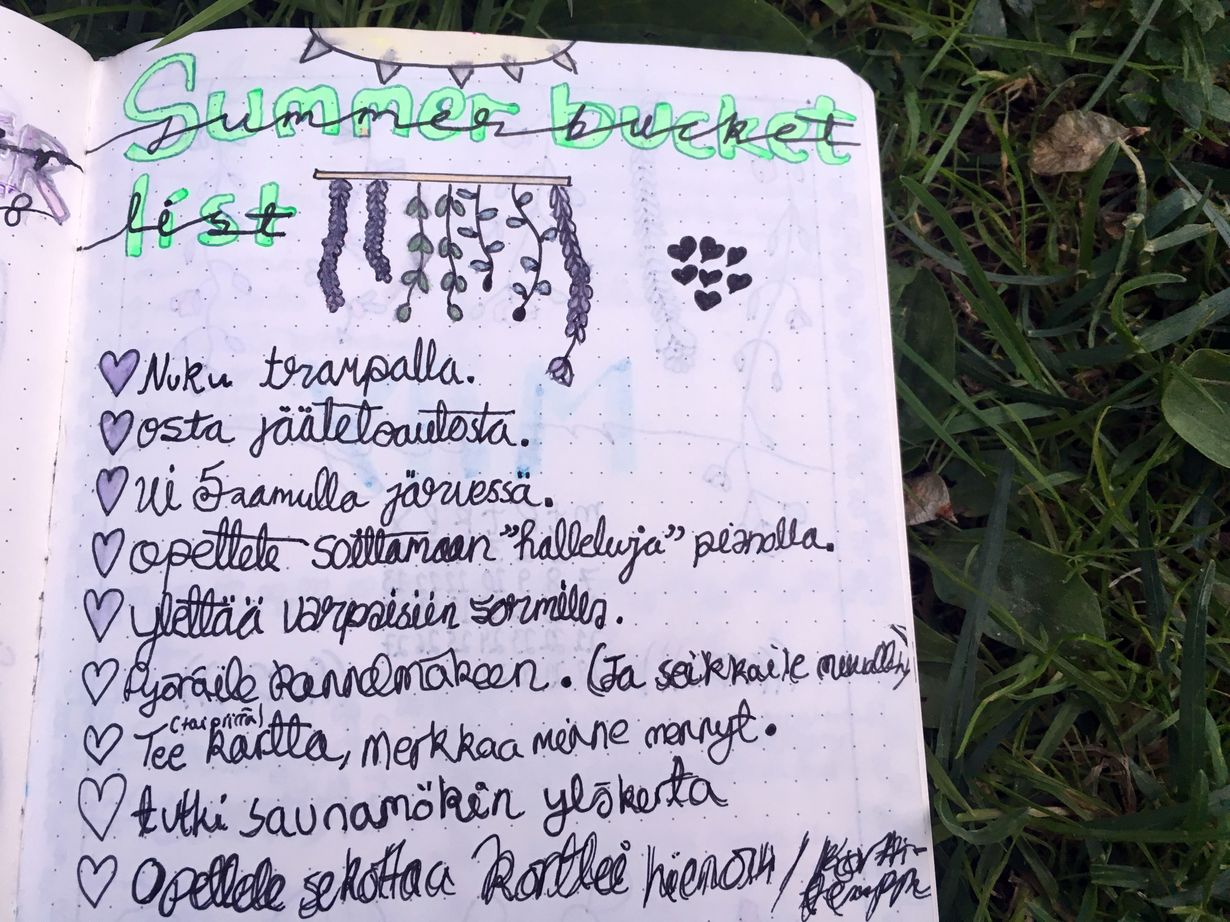 Summer bucket
list
Nuku trampalla.
osta jäätelöautosta.
Ui 5 aamulla järvessä.
opettele soittamaan "halleluja" pianolla.
ylettää varpaisiin sormilla.
Pyöräile kannelmäkeen. (Ja seikkaile muualla)
(tai piirrä)
Tee kartta, merkkaa minne mennyt.
tutki saunamökin yläkerta
Opettele sekottaa kortteja hienosti /